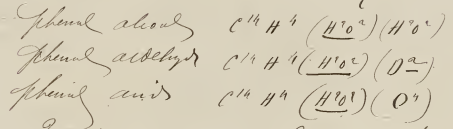 phenal alcool C¹⁴ H⁴ (H²O²) (H²O²)
phenal aldehyde C¹⁴ H⁴ (H²O²) (O²)
phenal acids C¹⁴ H⁴ (H²O²) (O⁴)